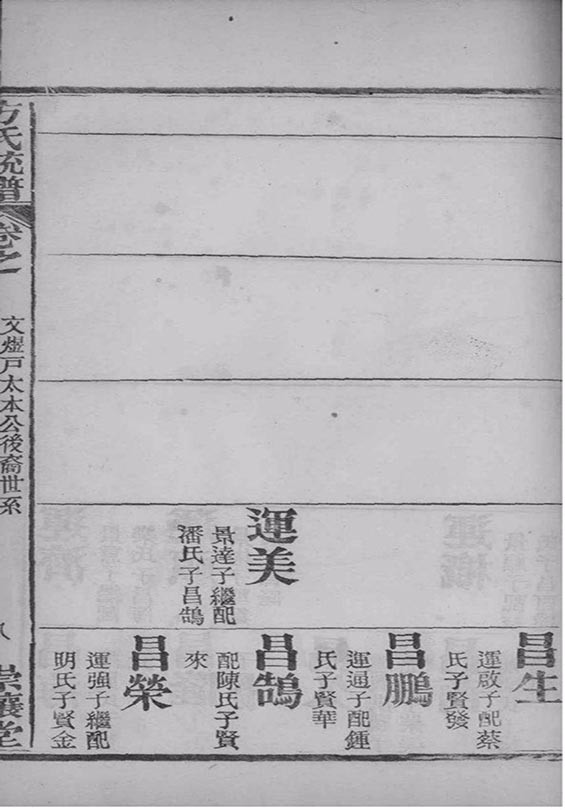 運美
景達子繼配
潘氏子昌鵠
昌生
運啟子配蔡
氏子賢發
昌鵬
運逥子配鍾
氏子賢華
昌鵠
配陳氏子賢
來
昌榮
運強子繼配
明氏子賢金
方氏統譜
卷之
文煜戸太本公後裔世系
八
堂